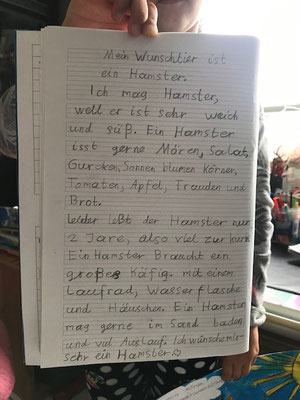 Mein Wunschtier ist
ein Hamster.
Ich mag Hamster,
weil er ist sehr weich
und süß. Ein Hamster
isst gerne Mören, Salat,
Gurken, Sonnen blumen Körner,
Tomaten, Äpfel, Trauden und
Brot.
Leider leßt der Hamster nur
2 Jare, also viel zu kurz
Ein Hamster Braucht ein
großes Käfig. mit einem
Laufrad, Wasserflasche
und Häuschen. Ein Hamster
mag gerne im Sand baden
und viel Auslauf. Ich wünsche mir
sehr ein Hamster♡